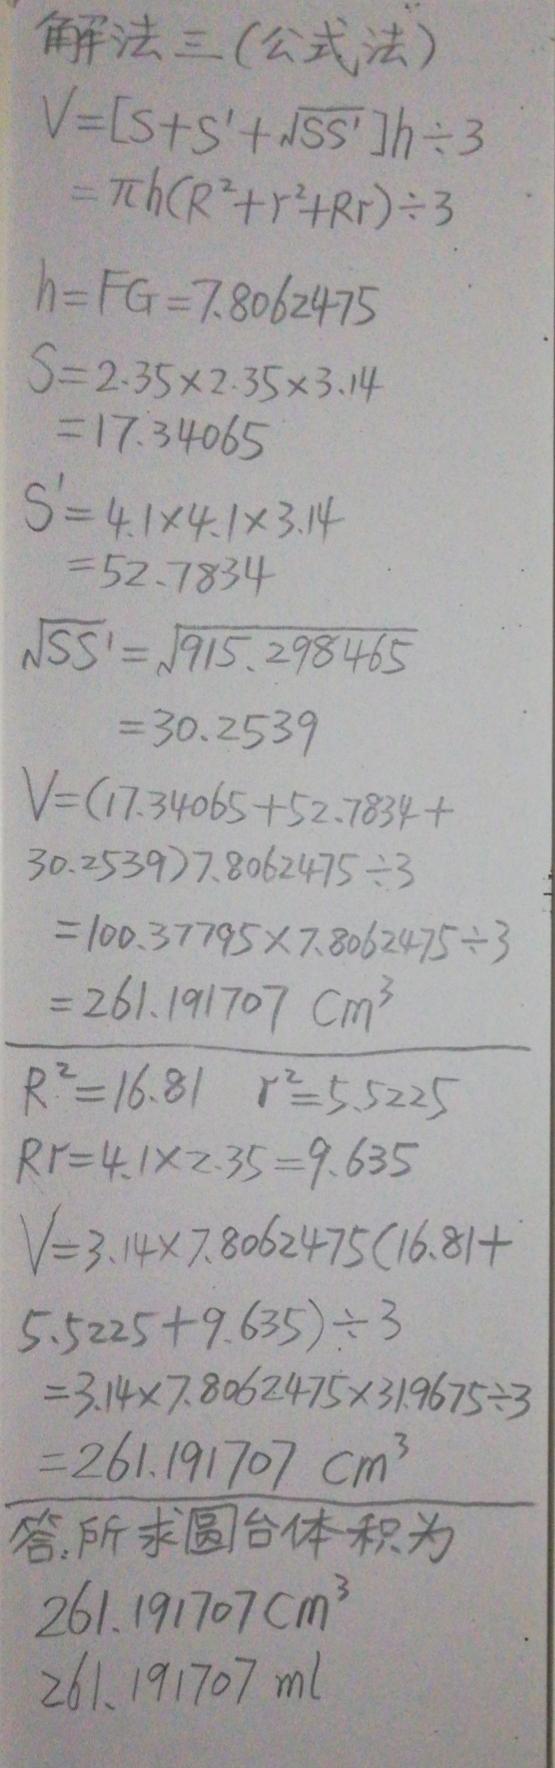 解法三(公式法)
V=[S+S'+√SS']h÷3
=πh(R²+r²+Rr)÷3
h=FG=7.8062475
S=2.35×2.35×3.14
=17.34065
S'=4.1×4.1×3.14
=52.7834
√SS'=√915.298465
=30.2539
V=(17.34065+52.7834+
30.2539)7.8062475÷3
=100.37795×7.8062475÷3
=261.191707 cm³
R²=16.81 r²=5.5225
Rr=4.1×2.35=9.635
V=3.14×7.8062475(16.81+
5.5225+9.635)÷3
=3.14×7.8062475×31.9675÷3
=261.191707 cm³
答:所求圆台体积为
261.191707cm³
261.191707 ml